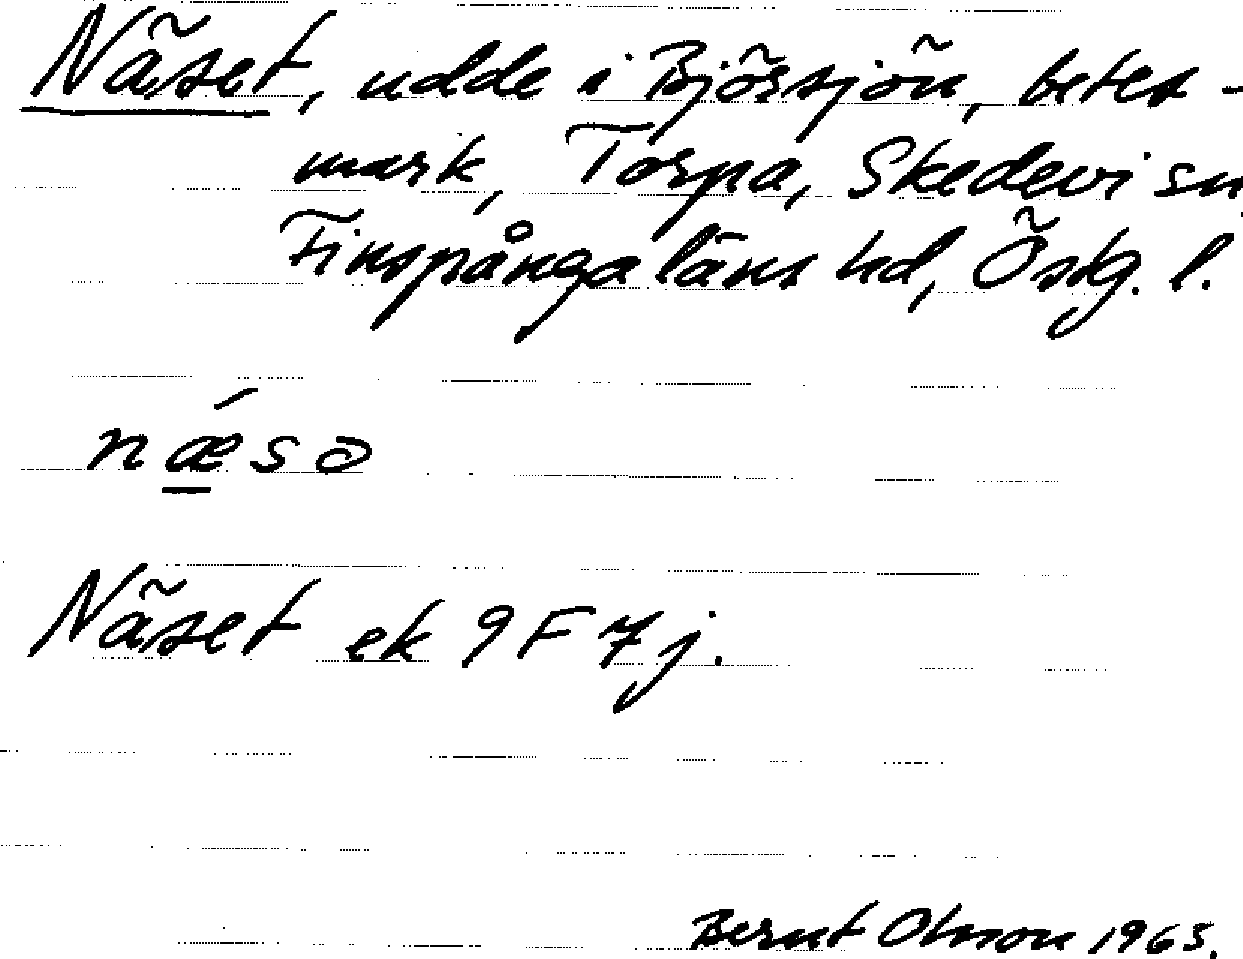 Näset, udde i Björsjön, betes-
mark, Torpa, Skedevi sn,
Finspånga läns hd, Östg. l.
nǽ̲sə
Näset ek 9F7j.
Bernt Olsson 1965.